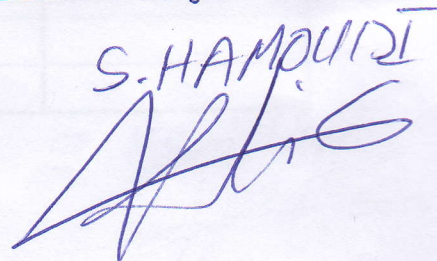 S. HAMOUDI